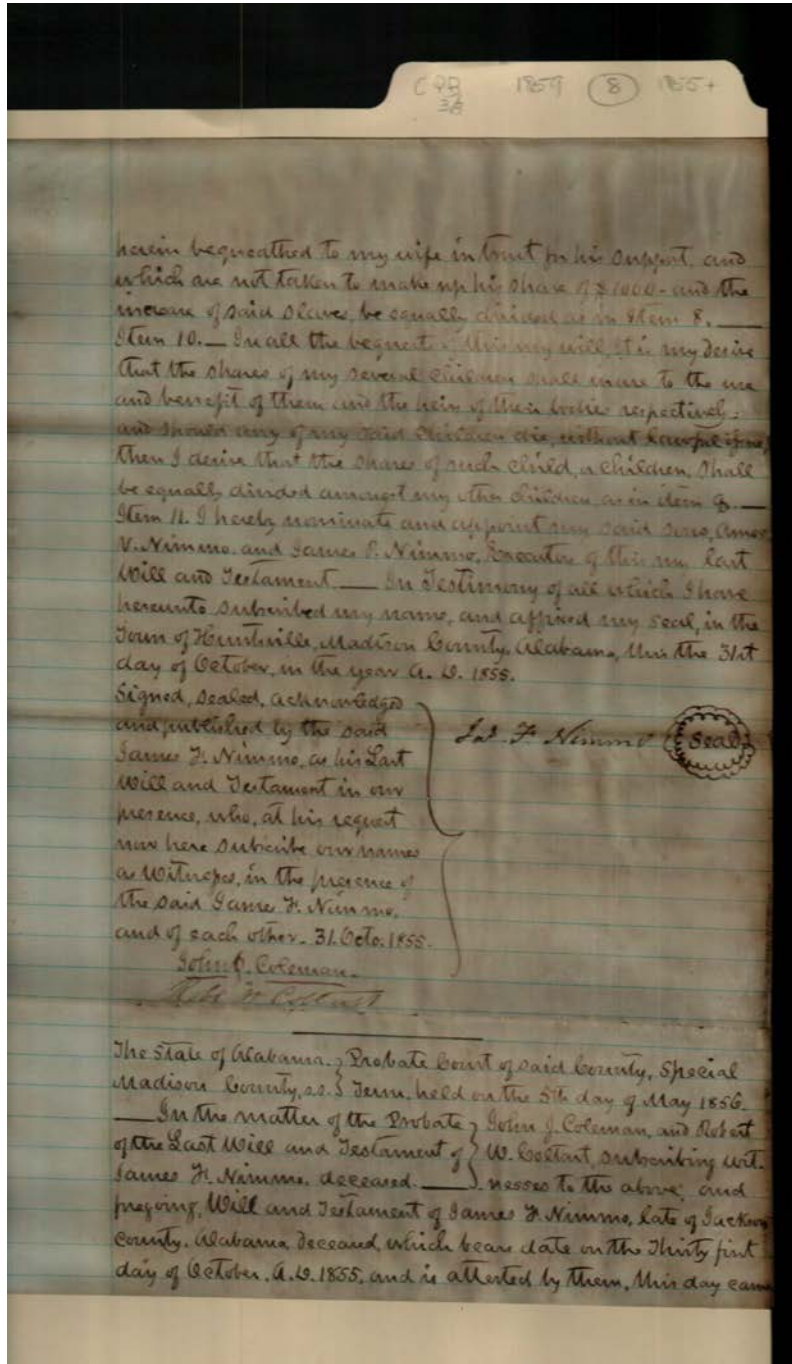 1859 8 1855+
herein bequeathed to my wife in trust for his support, and
which are not taken to make up his share of $1000 - and the
increase of said slaves, be equally divided as in Item 8. —
Item 10. — In all the bequest of this my will, it is my desire
that the shares of my several children shall inure to the use
and benefit of them and the heirs of their bodies respectively:
and should any of my said children die, without lawful issue,
then I desire that the shares of such child, or children, shall
be equally divided amongst my other children, as in item 8. —
Item 11. I hereby nominate and appoint my said sons, Amos
V. Nimmo, and James P. Nimmo, Executors of this my last
Will and Testament. — In Testimony of all which I have
hereunto subscribed my name, and affixed my seal, in the
Town of Huntsville, Madison County, Alabama, this the 31st
day of October, in the year A. D. 1855.
Signed, sealed, acknowledged
and published by the said
James F. Nimmo, as his Last
Will and Testament in our
presence, who, at his request
now here subscribe our names
as Witnesses, in the presence of
the said James F. Nimmo,
and of each other. 31. Octo. 1855.
Js. F Nimmo (Seal)
John J. Coleman.
Robt W Coltart
The State of Alabama. } Probate Court of said County, Special
Madison County, s.s. } Term, held on the 5th day of May 1856.
— In the matter of the Probate } John J. Coleman, and Robert
of the Last Will and Testament of } W. Coltart, subscribing wit-
James F. Nimmo, deceased. — } nesses to the above, and
foregoing, Will and Testament of James F. Nimmo, late of Jackson
County, Alabama, deceased, which bears date on the Thirty first
day of October, A. D. 1855, and is attested by them, this day came